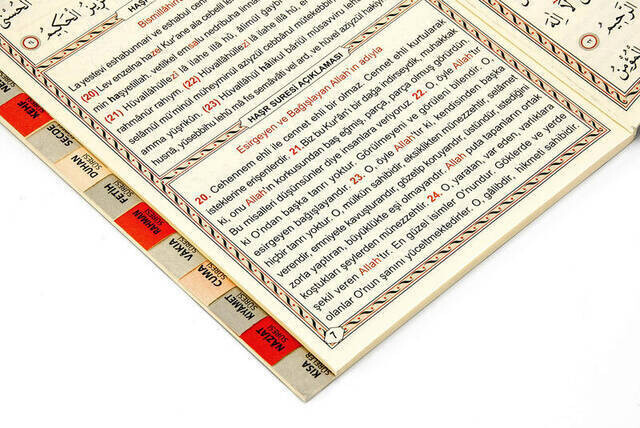 Bismillâhir
Layesteviî eshabunnari ve eshabul cenneh
(20) Lev enzelna hazel Kur'ane ala cebeli le
min haşyetillah. ve tilkel emsalu nedribuha linnasi
(21) Hüvallâhüllezî lâ ilahe illâ hû, âlimül ğaybi
rahmânür rahîm. (22) Hüvallâhüllezî lâ ilahe illâ hû, el melikül kuddûsüs
selâmül mü'minül müheyminül azîzül cebbârul mütekebbir
amma yüşrikûn. (23) Hüvallâhul hâlikul bâriül müsavviru lehül
husnâ, yüsebbihu lehû mâ fis semâvâti vel ard. ve hüvel azîzül hakîm
HAŞR SURESİ AÇIKLAMASI
Esirgeyen ve Bağışlayan Allah'ın adıyla
20. Cehennem ehli ile cennet ehli bir olmaz. Cennet ehli kurtularak
isteklerine erişenlerdir. 21. Biz bu Kur'ânı bir dağa indirseydik, muhakkak
ki, onu Allah'ın korkusundan baş eğmiş, parça, parça olmuş görürdün.
Bu misalleri düşünsünler diye insanlara veriyoruz. 22. O, öyle Allah'tır
ki O'ndan başka tanrı yoktur. Görülmeyeni ve görüleni bilendir. O,
esirgeyen bağışlayandır. 23. O, öyle Allah'tır ki, kendisinden başka
hiçbir tanrı yoktur. O, mülkün sahibidir, eksiklikten münezzehtir, selâmet
verendir, emniyete kavuşturandır, gözetip koruyandır, üstündür, istediğini
zorla yaptıran, büyüklükte eşi olmayandır. Allah puta tapanların ortak
koştukları şeylerden münezzehtir. 24. O, yaratan, var eden, varlıklara
şekil veren Allah'tır. En güzel isimler O'nundur. Göklerde ve yerde
olanlar O'nun şanını yüceltmektedirler. O, gâlibdir, hikmeti sahibidir.
7
KEHF
SECDE
DUHAN
SÛRESİ
FETİH
SÛRESİ
RAHMAN
SÛRESİ
VAKIA
SÛRESİ
CUMA
SÛRESİ
KIYAMET
SÛRESİ
NÂZİAT
SÛRESİ
KISA
SÛRELER